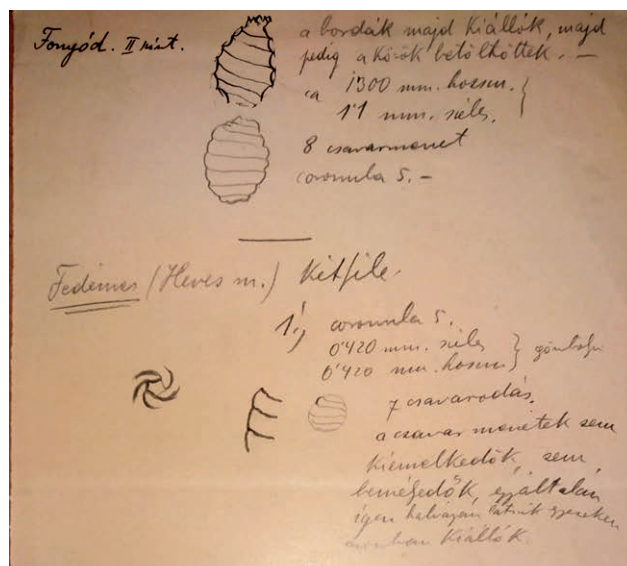 Fonyód. II
a bordák majd kiállók, majd
pedig a közök betöltöttek. —
ca 1'300 mm. hossz.
1'1 mm. széles.
8 csavarmenet
coronula 5. —
Fedémes (Heves m.) Kétféle.
1, coronula 5.
0'420 mm. széles
0'420 mm. hosszú
7 csavarodás.
a csavarmenetek sem
kiemelkedők, sem
bemélyedők, egyáltalán
igen halványan
kiállók.